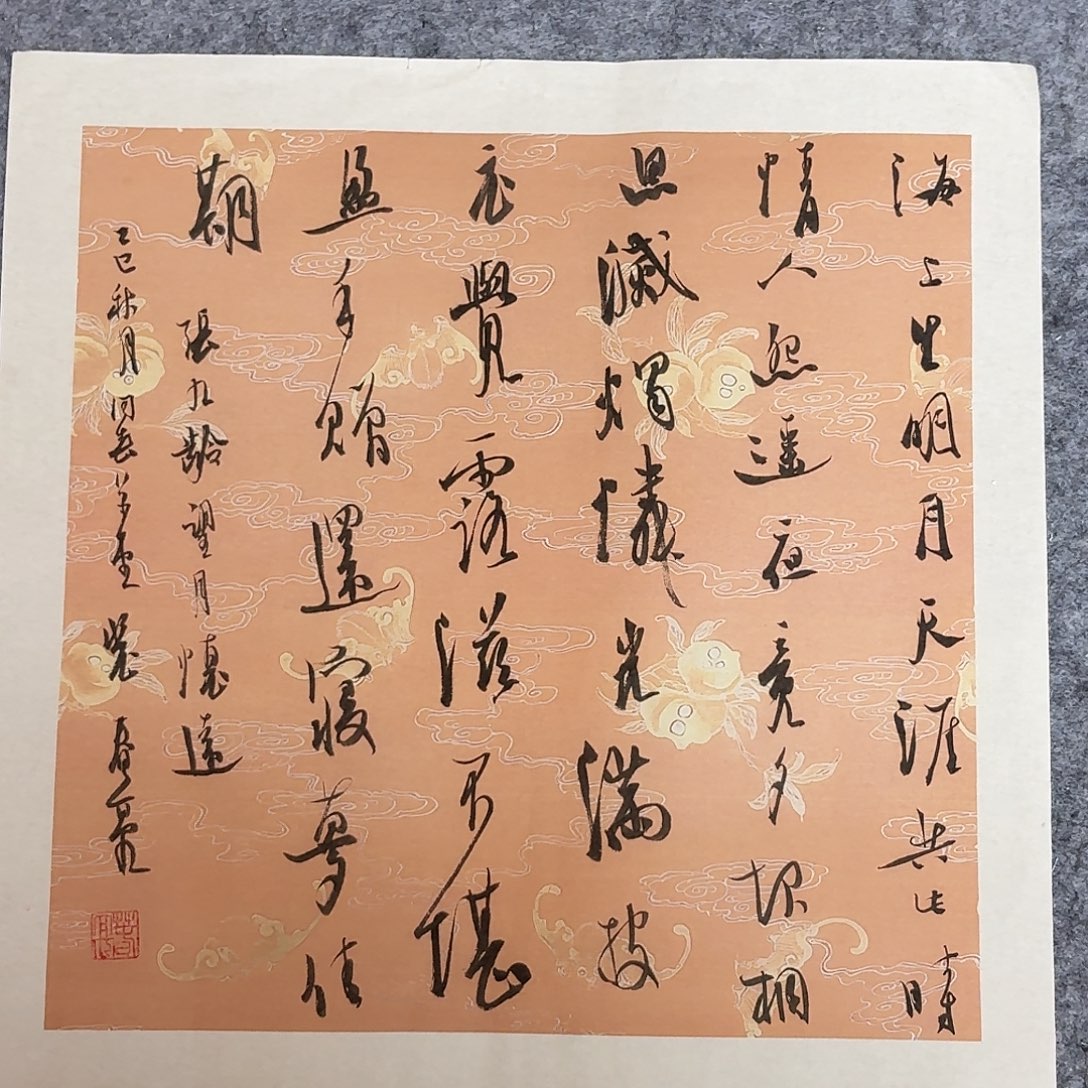 海上生明月天涯共此時
情人怨遥夜竟夕起相
思滅燭憐光滿披
衣覺露滋不堪
盈手贈還寢夢佳
期 張九齡望月懷遠
乙巳秋月同春草堂